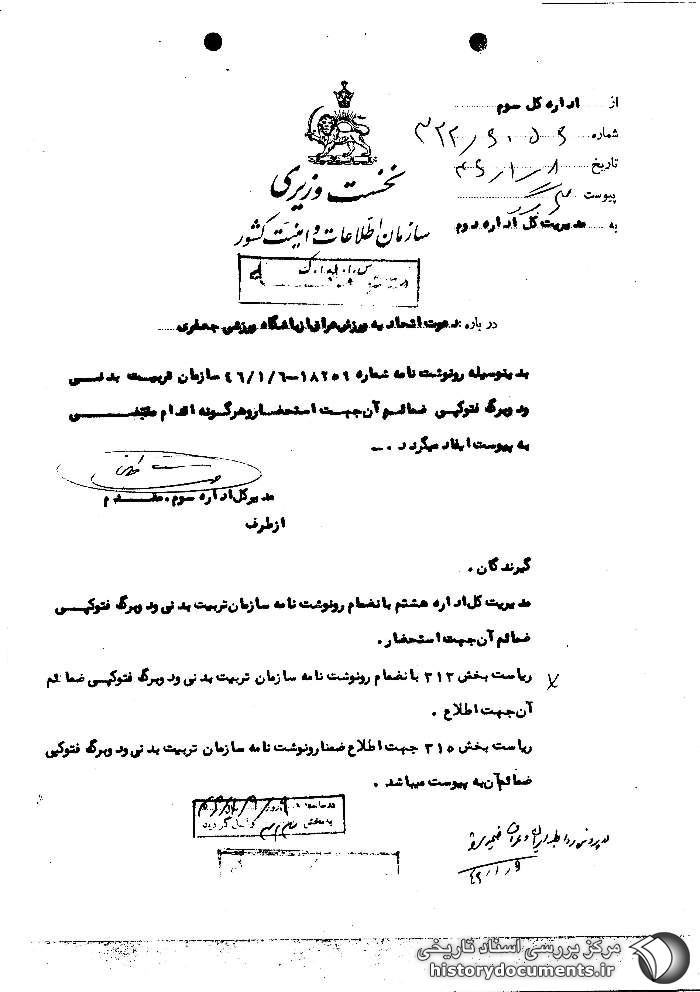 از اداره کل سوم
شماره ۳۲۲/۶۰۵۶
تاریخ ۴۶/۱/۸
پیوست
به مدیریت کل اداره دوم
نخست وزیری
سازمان اطلاعات و امنیت کشور
س.ا.و.ا.ک
درباره: دعوت اتحاد به ورزش عراق از باشگاه ورزشی جعفری
بدینوسیله رونوشت نامه شماره ۱۸۲۵۹-۴۶/۱/۶ سازمان تربیت بدنی
و دو برگ فتوکپی ضمائم آن جهت استحضار و هرگونه اقدام مقتضی
به پیوست ایفاد میگردد.
مدیر کل اداره سوم. مقدم
از طرف
گیرندگان.
مدیریت کل اداره هشتم با نضمام رونوشت نامه سازمان تربیت بدنی و دو برگ فتوکپی
ضمائم آن جهت استحضار.
ریاست بخش ۳۱۲ با نضمام رونوشت نامه سازمان تربیت بدنی و دو برگ فتوکپی ضمائم
آن جهت اطلاع.
ریاست بخش ۳۱۵ جهت اطلاع ضمنا رونوشت نامه سازمان تربیت بدنی و دو برگ فتوکپی
ضمائم آن به پیوست میباشد.
در ساعت روز
به بخش واصل گردید
در پرونده روابط ایران و عراق ضمیمه شود
۴۶/۱/۹
مرکز بررسی اسناد تاریخی
historydocuments.ir